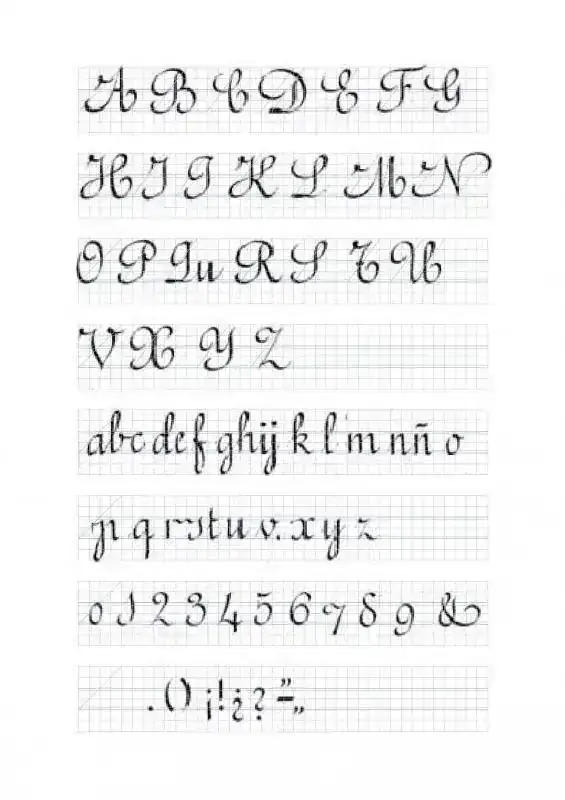 A B C D E F G
H I J K L M N
O P Qu R S T U
V X Y Z
a b c d e f g h i j k l m n ñ o
p q r s t u v x y z
0 1 2 3 4 5 6 7 8 9 &
. ( ) ¡ ! ¿ ? - " „